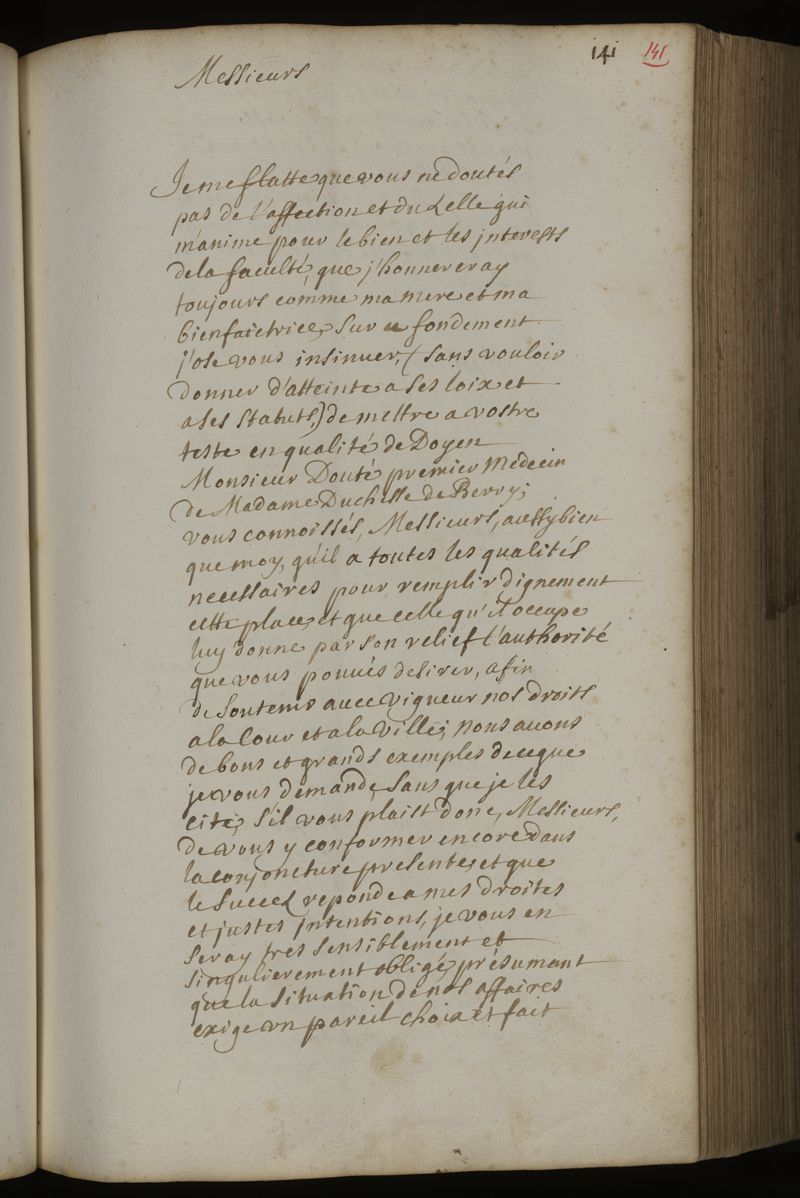 141 141
Messieurs
Je me flatte que vous ne doutés
pas de l'affection et du Zelle qui
m'anime pour le bien et les jnterests
de la faculté, que j'honnereray
toujours comme ma mere et ma
bienfaictrice, Sur ce fondement
j'ose vous insinuer, (sans vouloir
donner d'atteinte a ses loix et
a ses statuts,) de mettre a vostre
teste en qualité de Doyen
Monsieur Douté premier Medecin
de Madame Duchesse de Berry;
vous connoissés, Messieurs, aussy bien
que moy, qu'il a toutes les qualités
necessaires pour remplir dignement
cette place, et que celle qu'il occupe
luy donne par son relief l'authorité
que vous pouués desirer, afin
de soutenir auec vigueur nos droits
a la Cour et a la Ville; nous auons
de bons et grands exemples de ce que
je vous demande, sans que je les
cite; s'il vous plaist donc, Messieurs,
de vous y conformer encore dans
la conjoncture presente, et que
le Succez reponde a mes droites
et justes jntentions, je vous en
seray tres sensiblement et
singulierement obligé, présumant
que la situation de nos affaires
exige vn pareil choix et fait